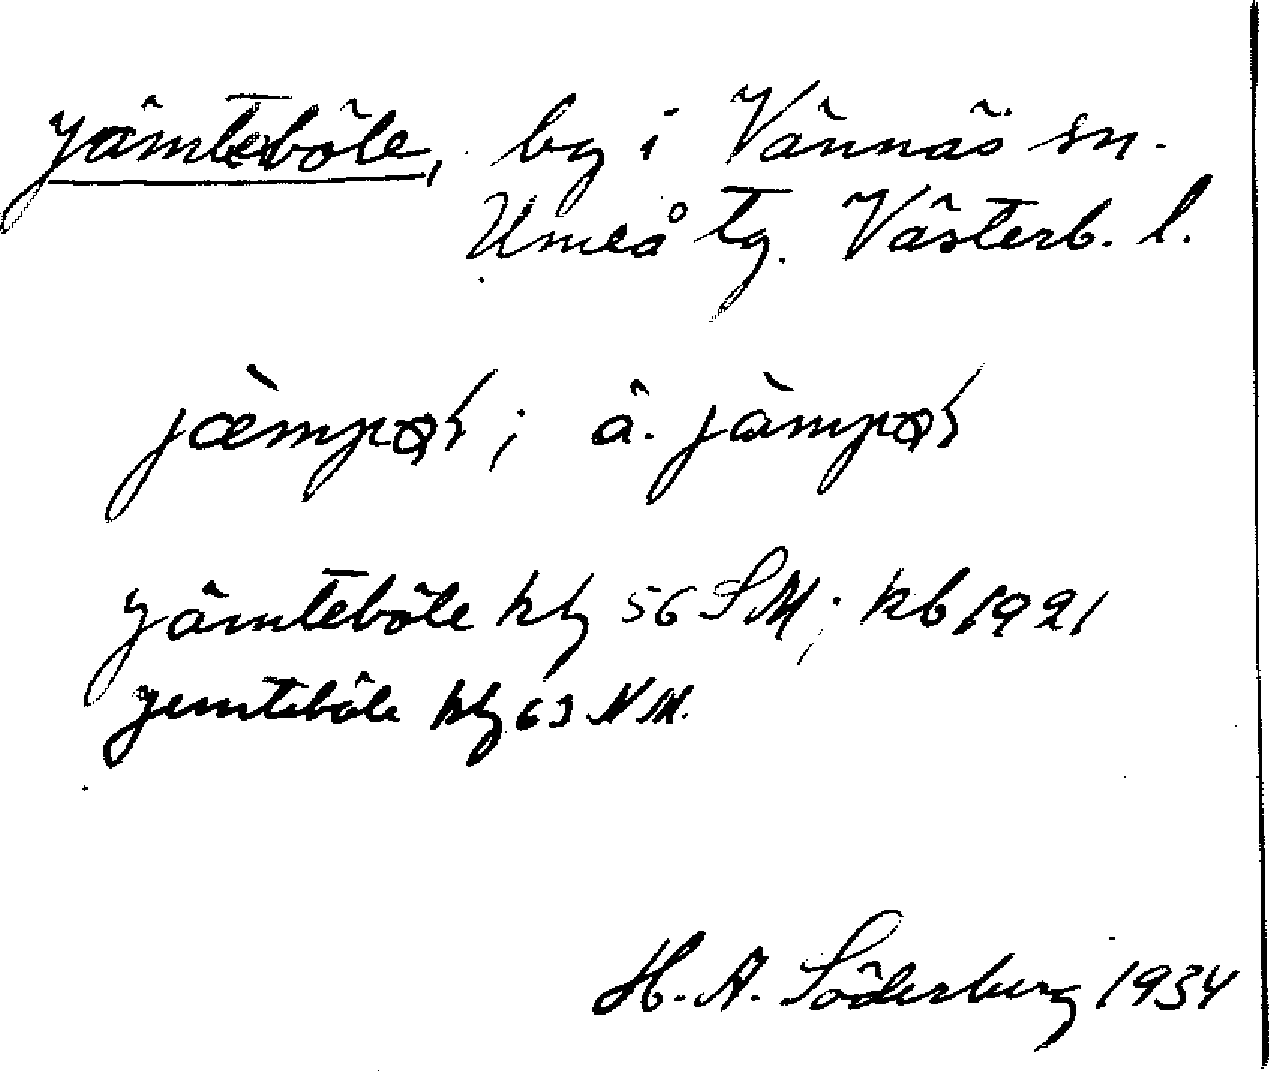 Jämteböle, by i Vännäs sn.
Umeå tg. Västerb. l.
ä.
Jämteböle hfl 56 SM; kb 1921
Jemteböle hfl 63 NM.
H. A. Söderberg 1934